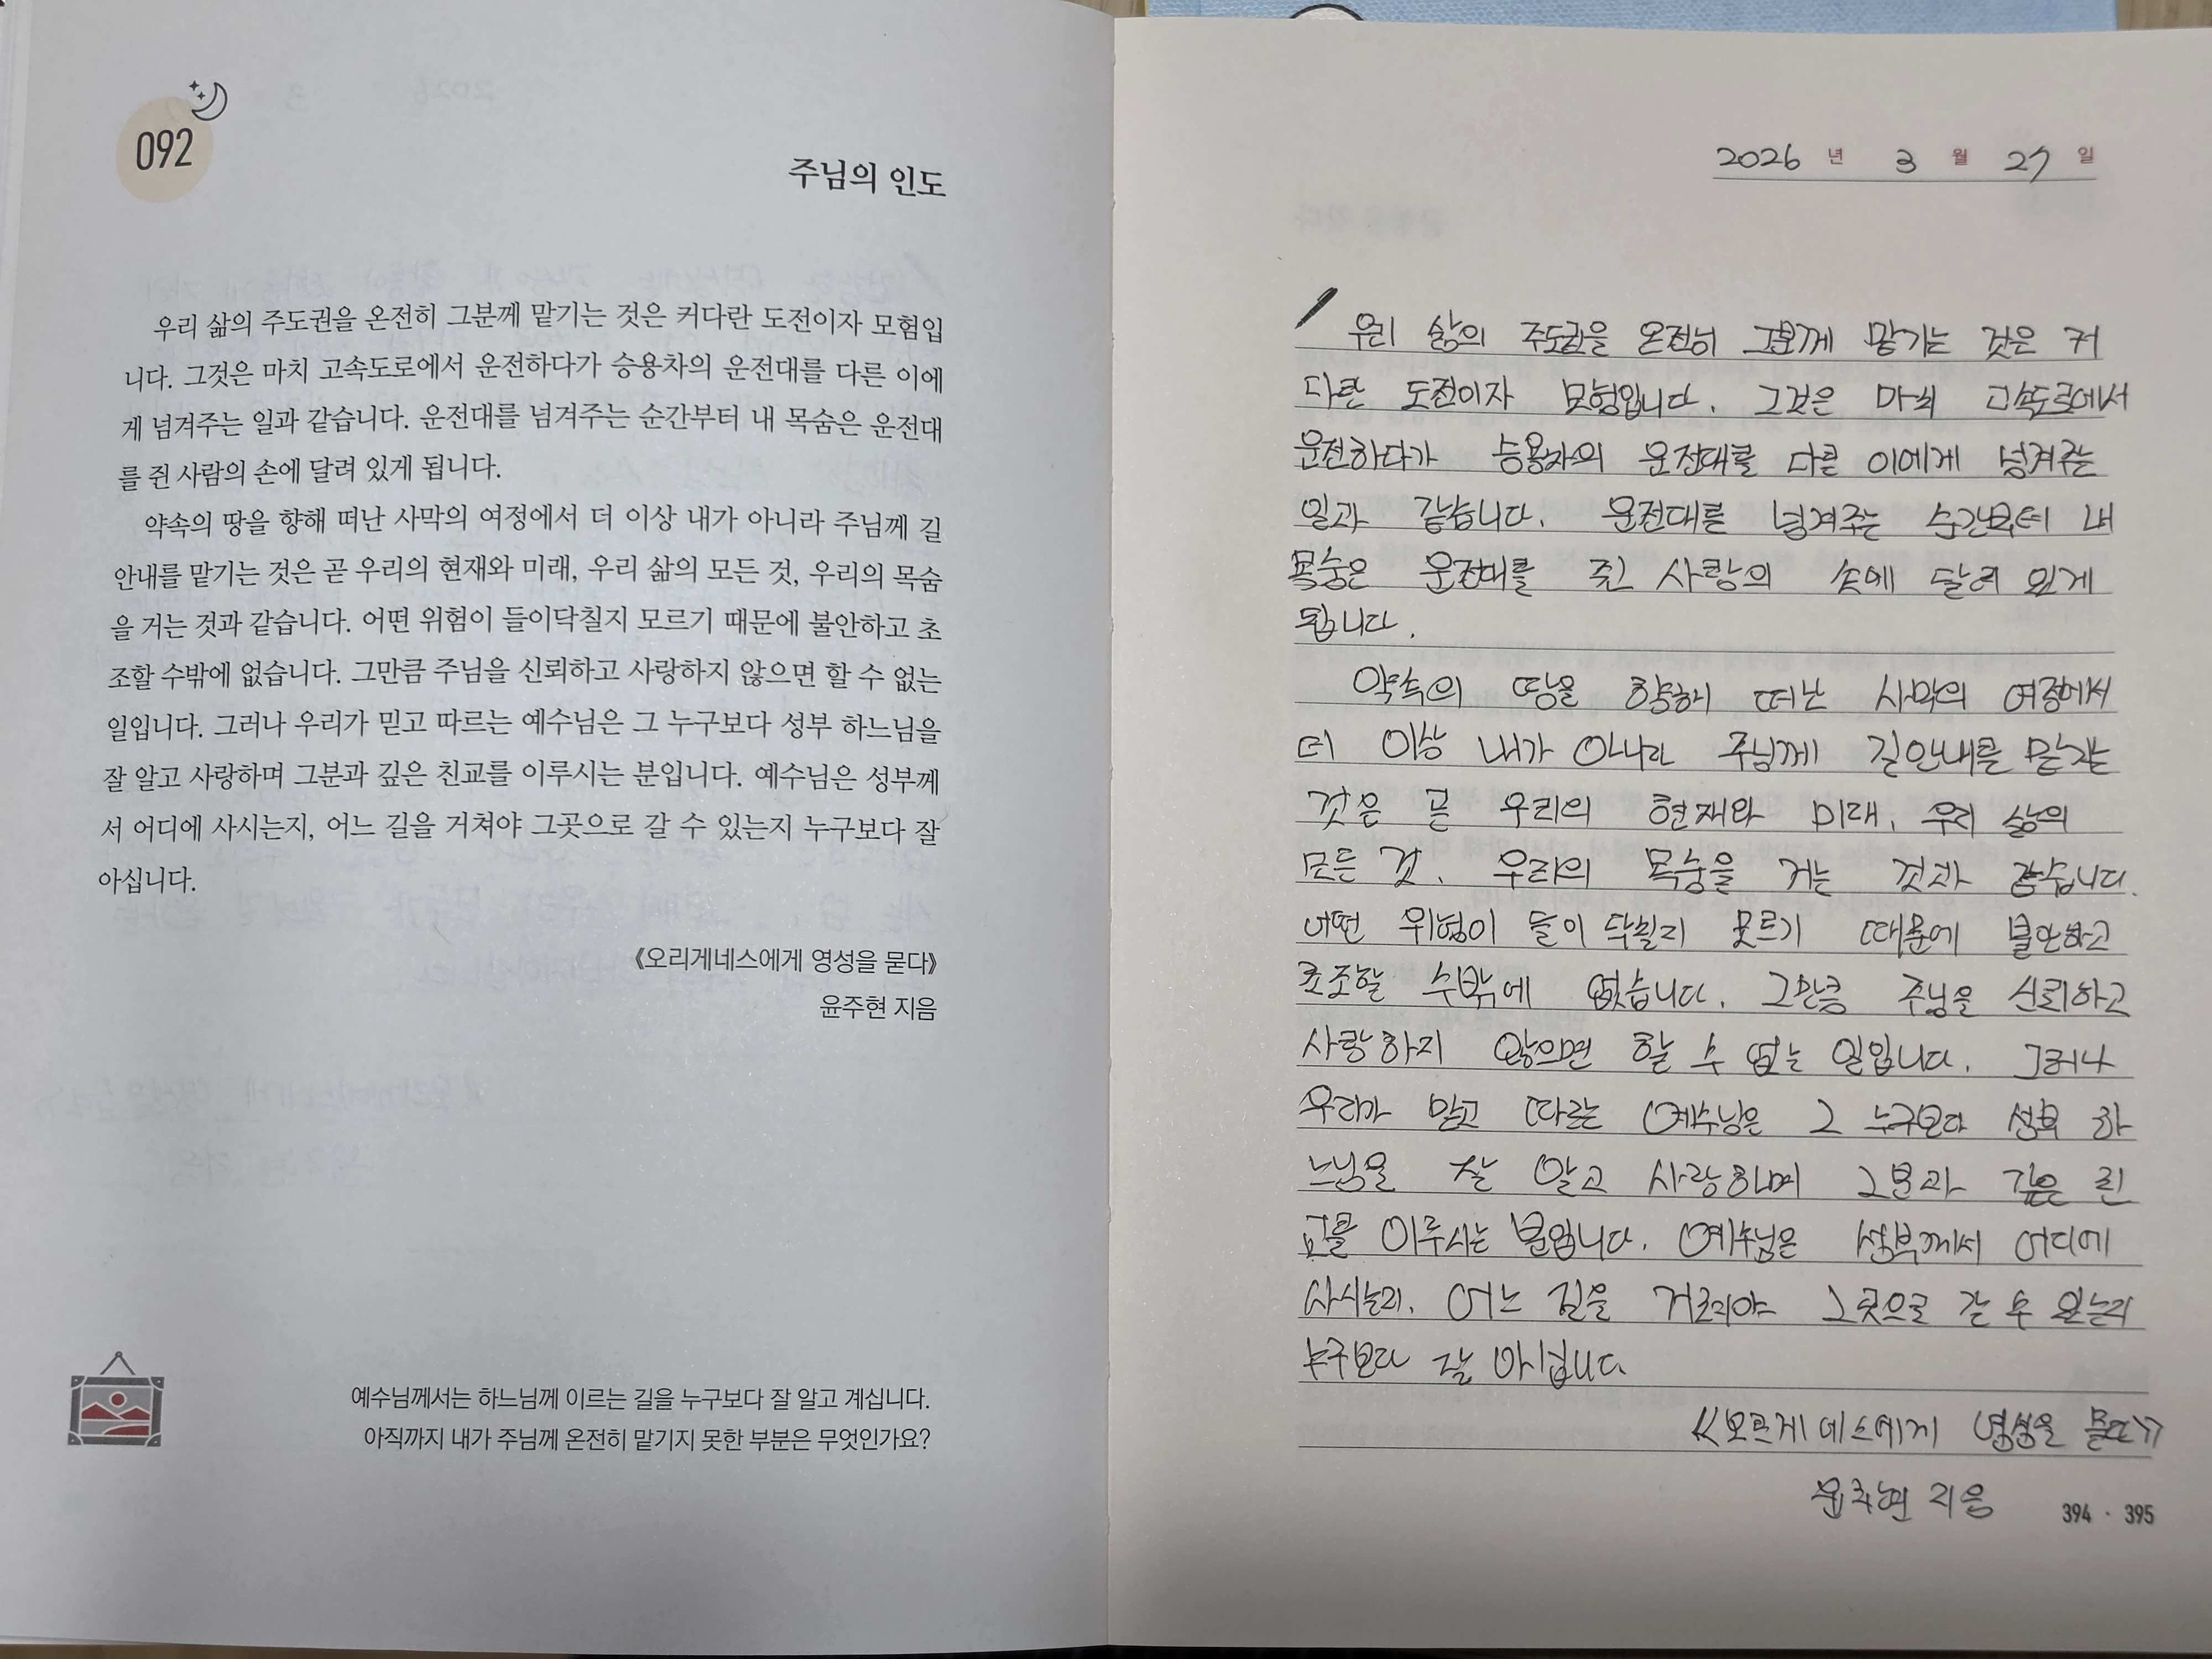 092
주님의 인도
우리 삶의 주도권을 온전히 그분께 맡기는 것은 커다란 도전이자 모험입
니다. 그것은 마치 고속도로에서 운전하다가 승용차의 운전대를 다른 이에
게 넘겨주는 일과 같습니다. 운전대를 넘겨주는 순간부터 내 목숨은 운전대
를 쥔 사람의 손에 달려 있게 됩니다.
약속의 땅을 향해 떠난 사막의 여정에서 더 이상 내가 아니라 주님께 길
안내를 맡기는 것은 곧 우리의 현재와 미래, 우리 삶의 모든 것, 우리의 목숨
을 거는 것과 같습니다. 어떤 위험이 들이닥칠지 모르기 때문에 불안하고 초
조할 수밖에 없습니다. 그만큼 주님을 신뢰하고 사랑하지 않으면 할 수 없는
일입니다. 그러나 우리가 믿고 따르는 예수님은 그 누구보다 성부 하느님을
잘 알고 사랑하며 그분과 깊은 친교를 이루시는 분입니다. 예수님은 성부께
서 어디에 사시는지, 어느 길을 거쳐야 그곳으로 갈 수 있는지 누구보다 잘
아십니다.
《오리게네스에게 영성을 묻다》
윤주현 지음
예수님께서는 하느님께 이르는 길을 누구보다 잘 알고 계십니다.
아직까지 내가 주님께 온전히 맡기지 못한 부분은 무엇인가요?
2026 년 3 월 27 일
우리 삶의 주도권을 온전히 그분께 맡기는 것은 커
다란 도전이자 모험입니다. 그것은 마치 고속도로에서
운전하다가 승용차의 운전대를 다른 이에게 넘겨주는
일과 같습니다. 운전대를 넘겨주는 순간부터 내
목숨은 운전대를 쥔 사람의 손에 달려 있게
됩니다.
약속의 땅을 향해 떠난 사막의 여정에서
더 이상 내가 아니라 주님께 길안내를 맡기는
것은 곧 우리의 현재와 미래, 우리 삶의
모든 것, 우리의 목숨을 거는 것과 같습니다.
어떤 위험이 들이 닥칠지 못르기 때문에 불안하고
초조할 수밖에 없습니다. 그만큼 주님을 신뢰하고
사랑하지 않으면 할 수 없는 일입니다. 그러나
우리가 믿고 따르는 예수님은 그 누구보다 성부 하
느님을 잘 알고 사랑하며 그분과 깊은 친
교를 이루시는 분입니다. 예수님은 성부께서 어디에
사시는지, 어느 길을 거쳐야 그곳으로 갈 수 있는지
누구보다 잘 아십니다
《오르게네스에게 영성을 묻다》
윤주현 지음
394 · 395